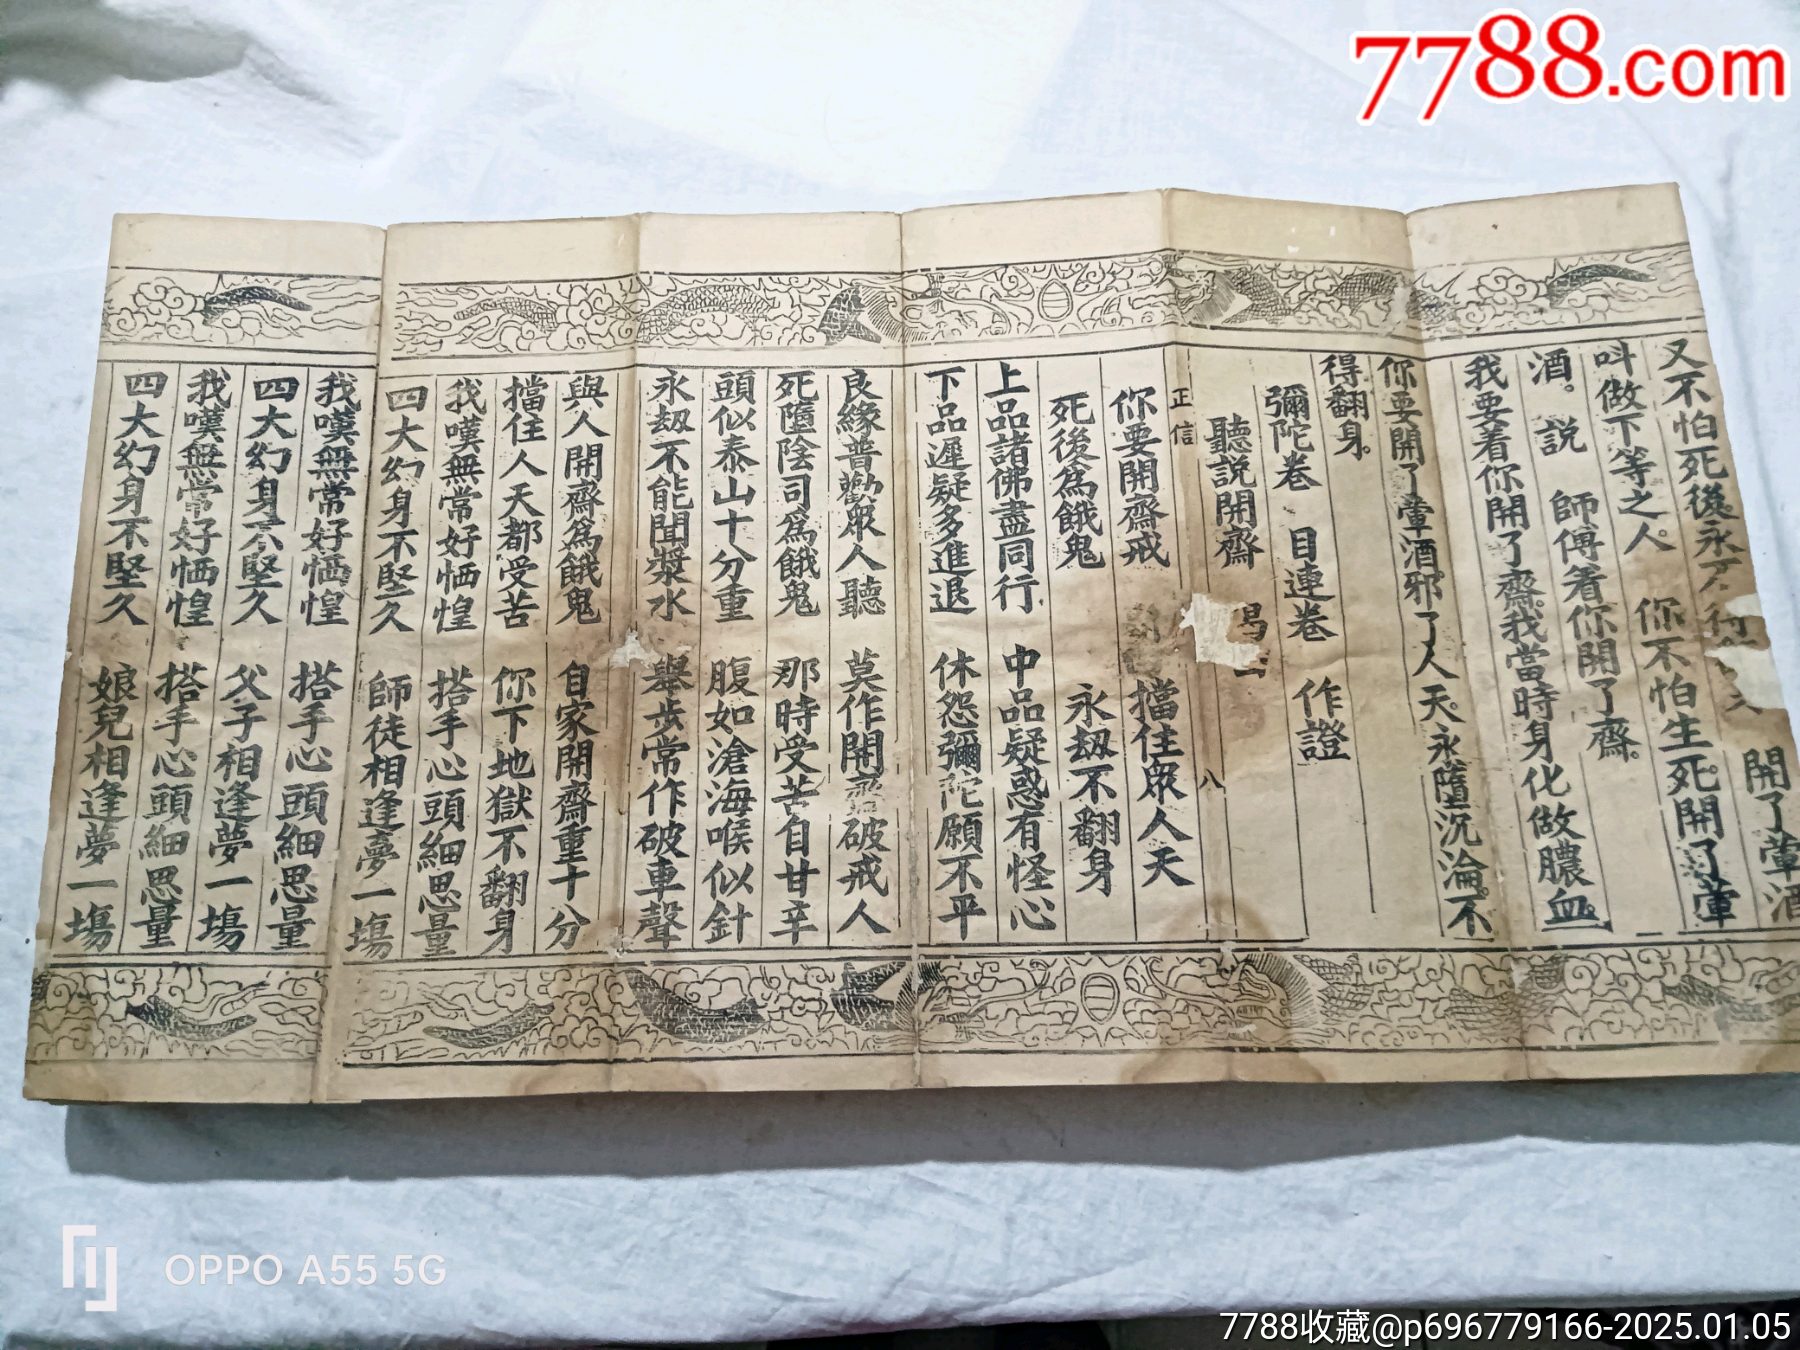 7788.com
開了葷酒
又不怕死後永不
叫做下等之人。 你不怕生死。開了葷
酒。說 師傅着你開了齋。
我要着你開了齋。我當時身化做膿血
你要開了葷酒邪了人天。永墮沉淪。不
得翻身。
彌陀卷 目連卷 作證
聽說開齋
正信 八
你要開齋戒 擋住衆人天
死後爲餓鬼 永劫不翻身
上品諸佛盡同行 中品疑惑有怪心
下品遲疑多進退 休怨彌陀願不平
良緣普勸衆人聽 莫作開齋破戒人
死墮陰司爲餓鬼 那時受苦自甘辛
頭似泰山十分重 腹如滄海喉似針
永劫不能聞漿水 舉步常作破車聲
與人開齋爲餓鬼 自家開齋重十分
擋住人天都受苦 你下地獄不翻身
我嘆無常好恓惶 搭手心頭細思量
四大幻身不堅久 師徒相逢夢一塲
我嘆無常好恓惶 搭手心頭細思量
四大幻身不堅久 父子相逢夢一塲
我嘆無常好恓惶 搭手心頭細思量
四大幻身不堅久 娘兒相逢夢一塲
OPPO A55 5G
7788收藏@p696779166-2025.01.05